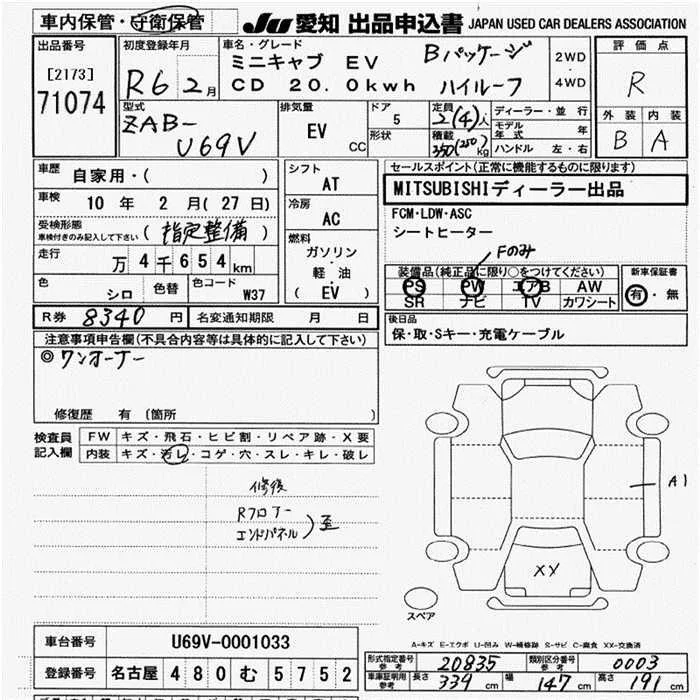 車内保管・守衛保管
JU 愛知 出品申込書 JAPAN USED CAR DEALERS ASSOCIATION
出品番号
[2173]
71074
初度登録年月
R6 2月
車名・グレード
ミニキャブ EV Bパッケージ
CD 20.0kwh ハイルーフ
2WD
・
4WD
評価点
R
外装 内装
B A
型式
ZAB-
U69V
排気量
EV
CC
ドア
5
形状
定員
2(4)人
積載
350(250)kg
ディーラー・並行
モデル年式 年
ハンドル 左・右
車歴
自家用・( )
車検
10年 2月(27日)
受検形態
車検付きのみ記入して下さい
(指定整備)
走行
万4千654km
色
シロ
色替
色コード
W37
シフト
AT
冷房
AC
燃料
ガソリン
・
軽油
( EV )
セールスポイント(正常に機能するものに限ります)
MITSUBISHIディーラー出品
FCM・LDW・ASC
シートヒーター
Fのみ
装備品(純正品に限り○をつけてください)
PS PW エアB AW
SR ナビ TV カワシート
新車保証書
有・無
R券 8340円
名変通知期限 月 日
後日品
保・取・Sキー・充電ケーブル
注意事項申告欄(不具合内容等は具体的に記入して下さい)
◎ワンオーナー
修復歴 有 〔箇所 〕
検査員
記入欄
FW キズ・飛石・ヒビ割・リペア跡・X要
内装 キズ・汚レ・コゲ・穴・スレ・キレ・破レ
修復
Rフロアー
エンドパネル)歪
A1
XX
スペア
A-キズ E-エクボ U-凹み W-補修跡 S-サビ C-腐食 XX-交換済
車台番号 U69V-0001033
登録番号 名古屋 480 む 5752
形式指定番号
参考
20835
類別区分番号
参考
0003
車庫証明用
参考
長さ 339cm 幅 147cm 高さ 191cm